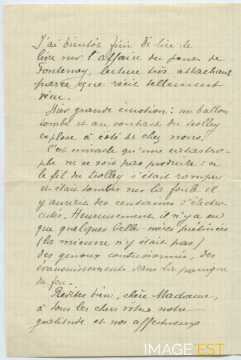 J'ai bientôt fini de lire le
livre sur l'affaire du poney de
Fontenay, lecture très attachante
parce que récit tellement
vécu.
Hier grande émotion : un ballon
tombé et au contact du trolley
explose à côté de chez nous.
C'est miracle qu'une catastro-
phe ne se sois pas produite : si
le fil du trolley s'était rompu
et était tombé sur la foule il
y aurait des centaines d'électro-
cutés. Heureusement il n'y a eu
que quelques belle-mères piétinées
(la mienne n'y était pas)
des genoux contusionnés, des
évanouissements dans la panique
du feu.
Redites bien, chère Madame,
à tous les chers vôtres notre
gratitude et nos affectueux
IMAGE'EST